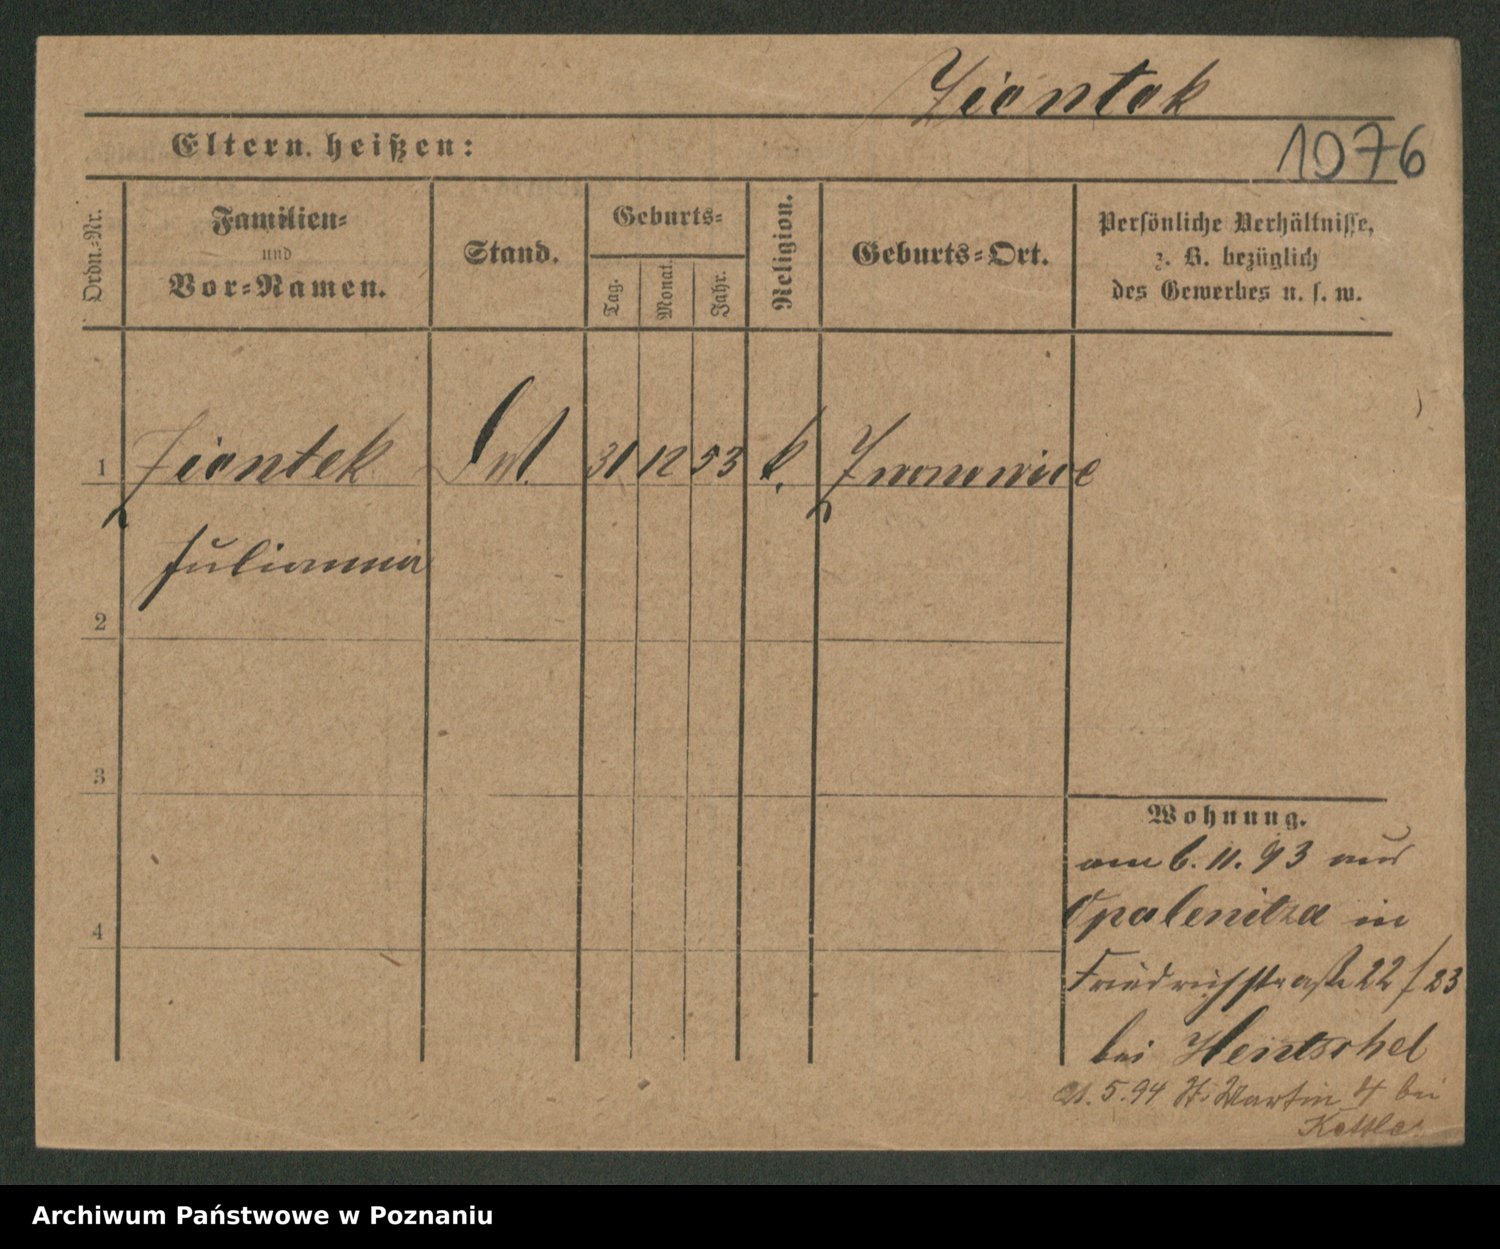 Ziontek
1076
Eltern heißen:
Ordn.-Nr.
Familien-
und
Vor-Namen.
Stand.
Geburts-
Tag.
Monat.
Jahr.
Religion.
Geburts-Ort.
Persönliche Verhältnisse,
z. B. bezüglich
des Gewerbes u. s. w.
1 Ziontek 31 12 53 k.
Julianna
2
3
4
Wohnung.
am 6. 11. 93 aus
Opalenitza in
Friedrichstraße 22/23
bei Hentschel
21. 5. 94 St. Martin 4 bei
Archiwum Państwowe w Poznaniu